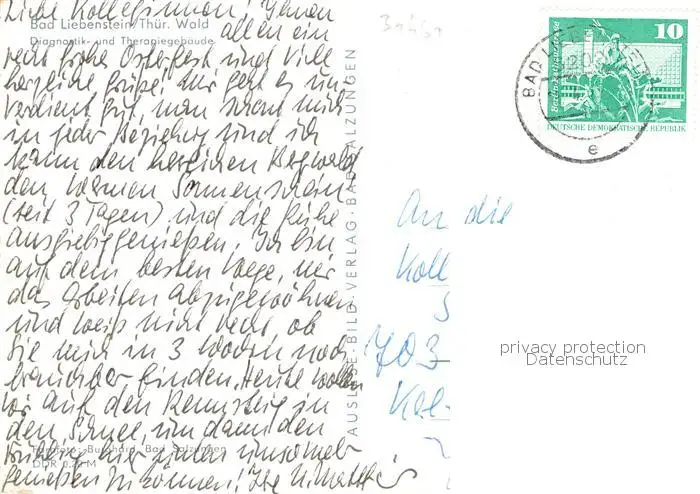 Liebe Kolleginnen! Ihnen
Bad Liebenstein/Thür. Wald
allen ein
Diagnostik- und Therapiegebäude
recht frohe Osterfest und viele
herzliche Grüße! Mir geht es un-
verdient gut, man schont mich
in jeder Beziehung und ich
kann den herrlichen Bergwald
den warmen Sonnenschein
(seit 3 Tagen) und die Ruhe
ausgiebig genießen. Ich bin
auf dem besten Wege, mir
das Arbeiten abzugewöhnen
und weiß nicht recht, ob
Sie mich in 3 Wochen noch
brauchbar finden. Heute wollen
wir auf den Rennsteig in
den Schnee, um dann den
Frühling hier unten umso mehr
Bad Salzungen
DDR 0,20 M
genießen zu können! Ihre
AUSLESE-BILD-VERLAG · BAD SALZUNGEN
10
DEUTSCHE DEMOKRATISCHE REPUBLIK
BAD LIEBENSTEIN
e
An die
Koll
703
privacy protection
Datenschutz